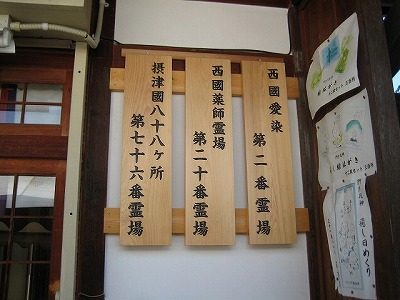 西國愛染
第二番霊場
西國薬師霊場
第二十番霊場
摂津國八十八ヶ所
第七十六番霊場